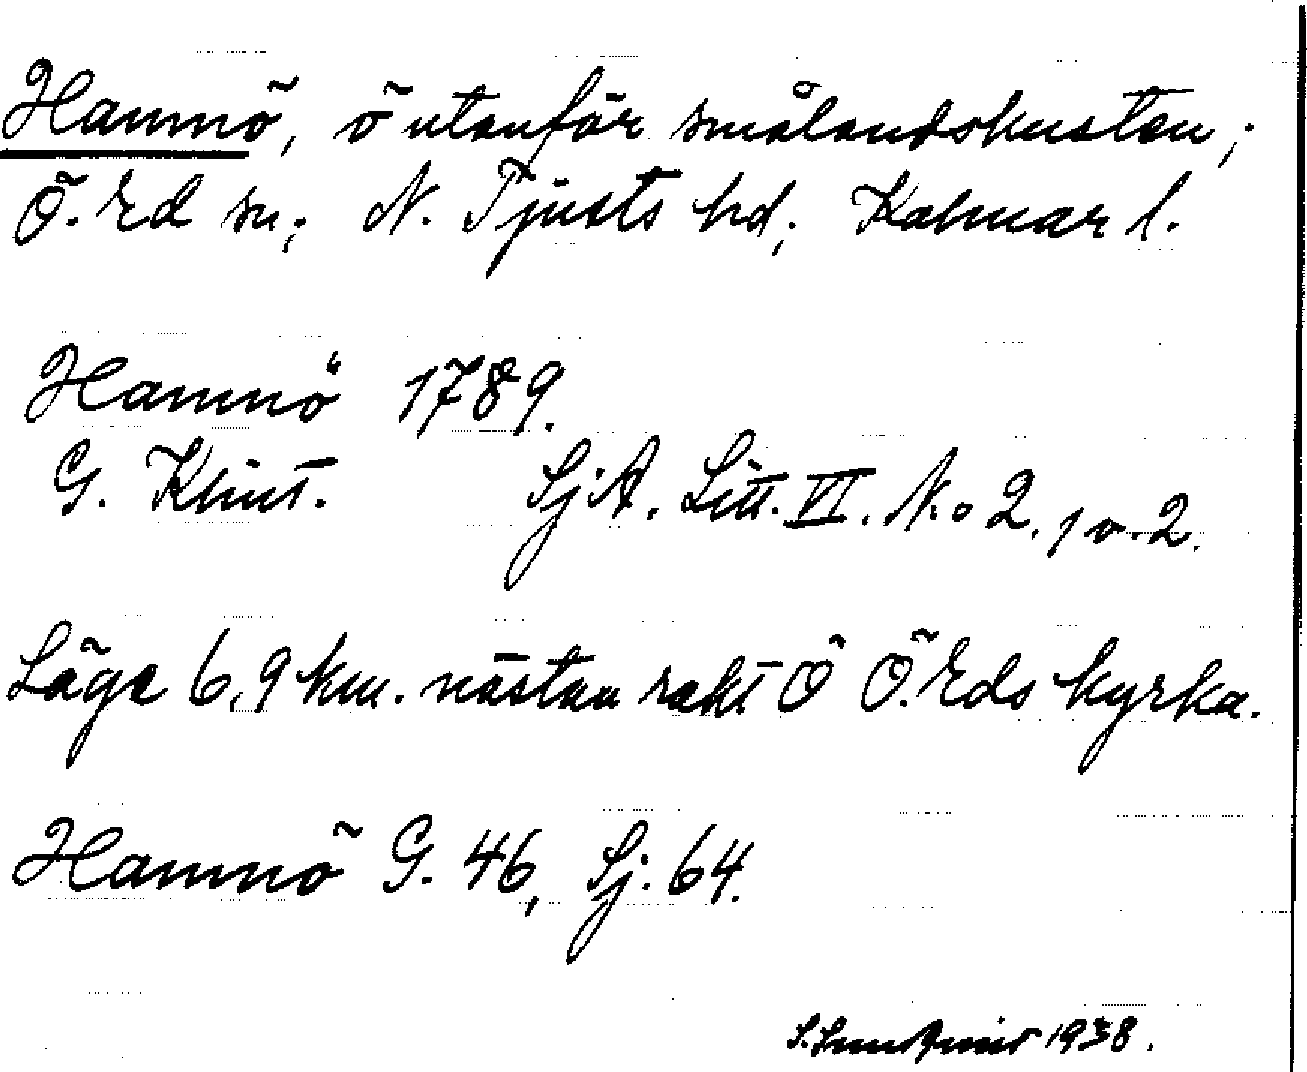 Hamnö, ö utanför smålandskusten;
Ö. Ed sn; N. Tjusts hd; Kalmar l.
Hamnö 1789.
G. Klint. SjA. Litt. VI. No 2, 1 o. 2.
Läge 6,9 km. nästan rakt Ö Ö. Eds kyrka.
Hamnö G. 46, Sj. 64.
S. Lundquist 1938.